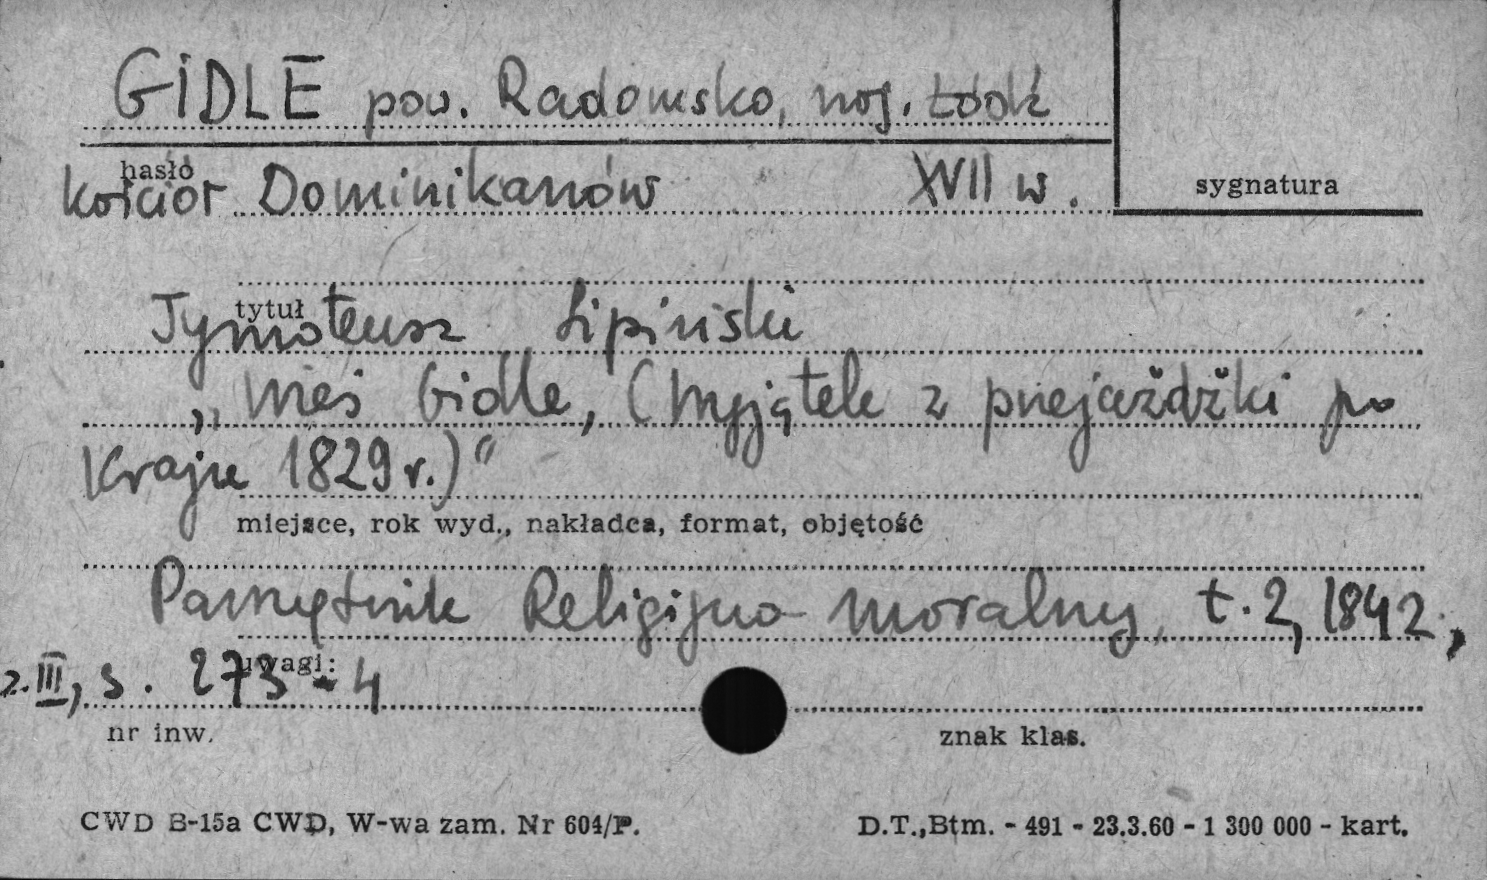 GIDLE pow. Radomsko, woj. Łódź
hasło
kościół Dominikanów XVII w.
sygnatura
tytuł
Tymoteusz Lipiński
„Wieś Gidle, (Wyjątek z przejażdżki po
Kraju 1829 r.)"
miejsce, rok wyd., nakładca, format, objętość
Pamiętnik Religijno-moralny, t. 2, 1842,
z. III, s. 273-4
uwagi:
nr inw.
znak klas.
CWD B-15a CWD, W-wa zam. Nr 604/P.
D.T.,Btm. - 491 - 23.3.60 - 1 300 000 - kart.